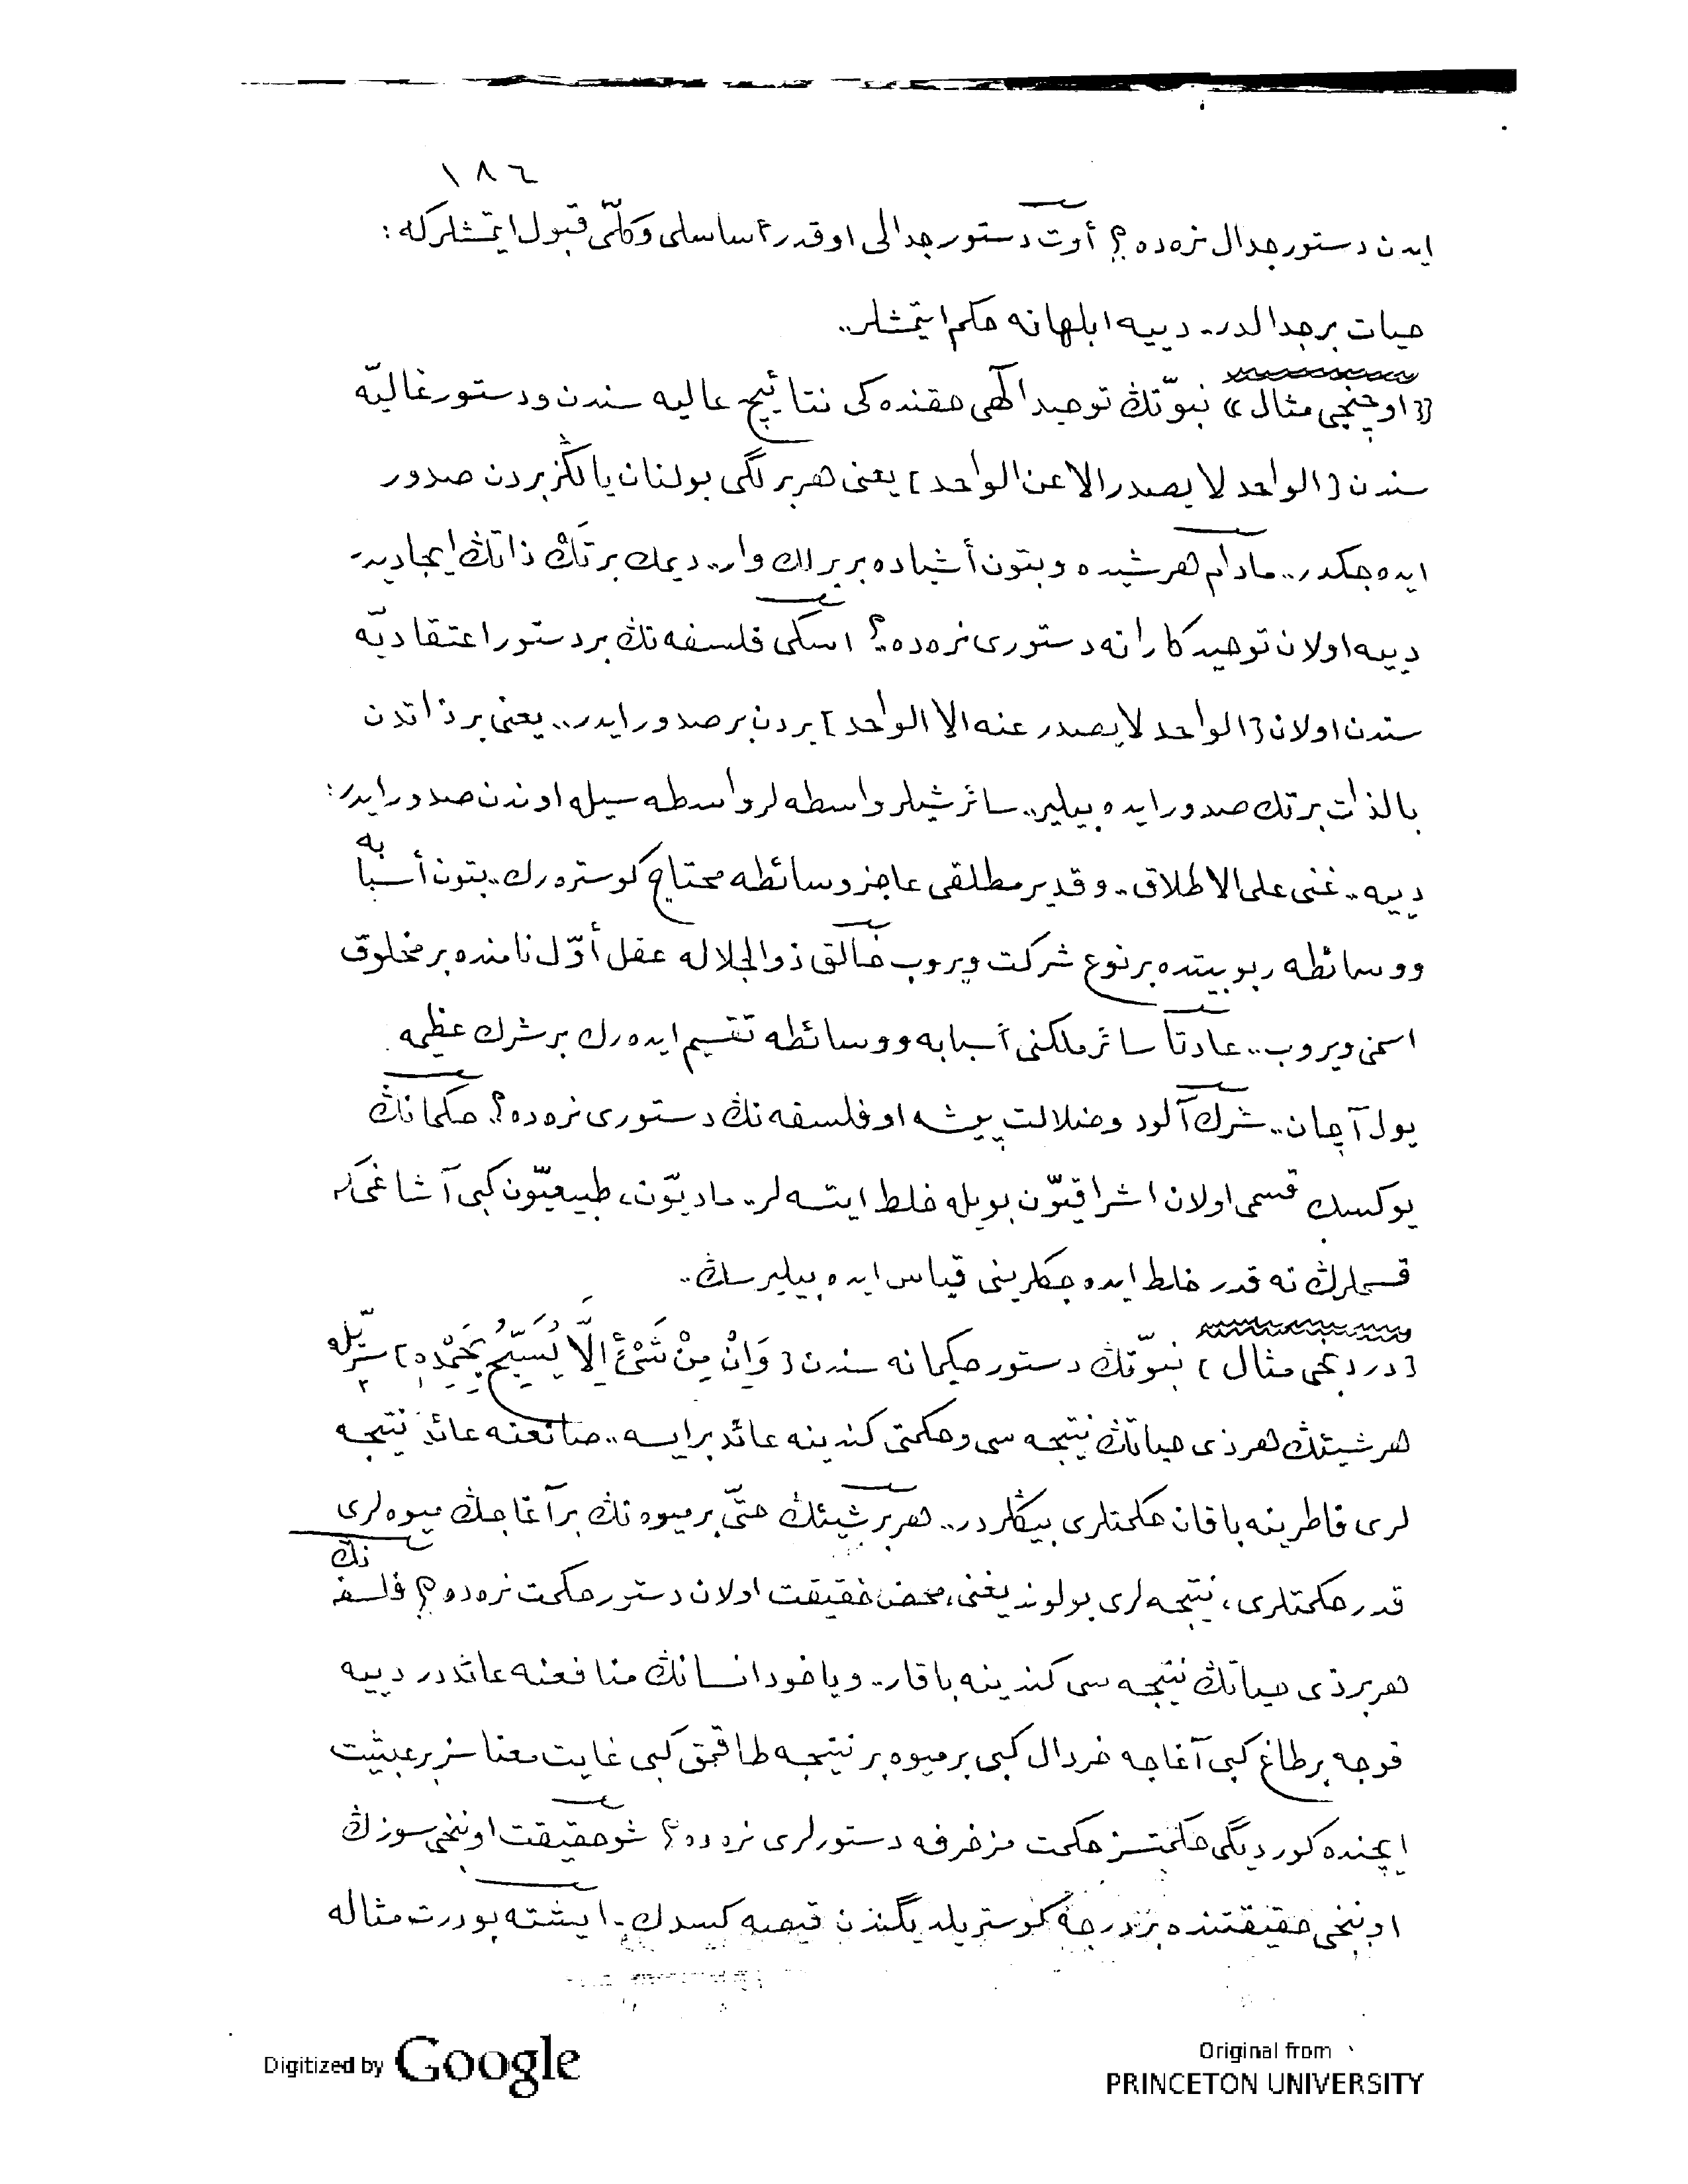 ١٨٦
ايدن دستور جدال نره‌ده؟ أوت دستور جدالى اوقدر أساسلى وكلّى قبول ايتمشلركه :
حيات بر جدالدر.. دييه ابلهانه حكم ايتمشلر..
[اوچنجى مثال] نبوّتڭ توحيد الٓهى حقنده‌كى نتائج عاليه سندن و دستور غاليه
سندن [الواحد لا يصدر الا عن الواحد] يعنى هر برلگى بولنان يالڭز بردن صدور
ايده‌جكدر.. مادام هر شيده و بتون أشياده بر برلك وار.. ديمك بر تَكْ ذاتڭ ايجاديدر
دييه اولان توحيدكارانه دستورى نره‌ده؟ اسكى فلسفه‌نڭ بر دستور اعتقاديّه
سندن اولان [الواحد لا يصدر عنه الا الواحد] بردن بر صدور ايدر.. يعنى بر ذاتدن
بالذات بر تك صدور ايده‌بيلير.. سائر شيلر واسطه‌لر واسطه‌سيله اوندن صدور ايدر:
دييه.. غنى على الاطلاق.. و قدير مطلقى عاجز وسائطه محتاج كوستره‌رك.. بتون أسبابه
و وسائطه ربوبيتده بر نوع شركت ويروب خالق ذو الجلاله عقل أوّل نامنده بر مخلوق
اسمنى ويروب.. عادتا سائر ملكنى أسبابه و وسائطه تقسيم ايده‌رك بر شرك عظيمه
يول آچان.. شرك آلود و ضلالت پيشه او فلسفه‌نڭ دستورى نره‌ده؟ حكمانڭ
يوكسك قسمى اولان اشراقيّون بويله خلط ايتسه‌لر.. ماديّون، طبيعيّون كبى آشاغى‌كى
قسملرڭ نه قدر خلط ايده‌جكلرينى قياس ايده‌بيليرسڭ..
[دردنجى مثال] نبوّتڭ دستور حكيمانه سندن [وَاِنْ مِنْ شَىْءٍ اِلَّا يُسَبِّحُ بِحَمْدِهِ] سرّيله
هر شيئڭ هر ذى حياتڭ نتيجه‌سى و حكمتى كندينه عائد بر ايسه.. صانعنه عائد نتيجه
لرى فاطرينه باقان حكمتلرى بيڭلردر.. هر بر شيئڭ حتّى بر ميوه‌نڭ بر آغاجڭ ميوه‌لرى
قدر حكمتلرى، نتيجه‌لرى بولونديغنى، محض حقيقت اولان دستور حكمت نره‌ده؟ فلسفه‌نڭ
هر بر ذى حياتڭ نتيجه‌سى كندينه باقار.. وياخود انسانڭ منافعنه عائددر دييه
قوجه بر طاغ كبى آغاجه خردال كبى بر ميوه بر نتيجه طاقمق كبى غايت معناسز بر عبثيت
ايچنده كورديگى حكمتسز حكمت مزخرفه دستورلرى نره‌ده؟ شو حقيقت اوننجى سوزڭ
اوننجى حقيقتنده بر درجه كوستريلديگندن قيصه كسدك.. ايشته بو درت مثاله
Digitized by Google
Original from
PRINCETON UNIVERSITY